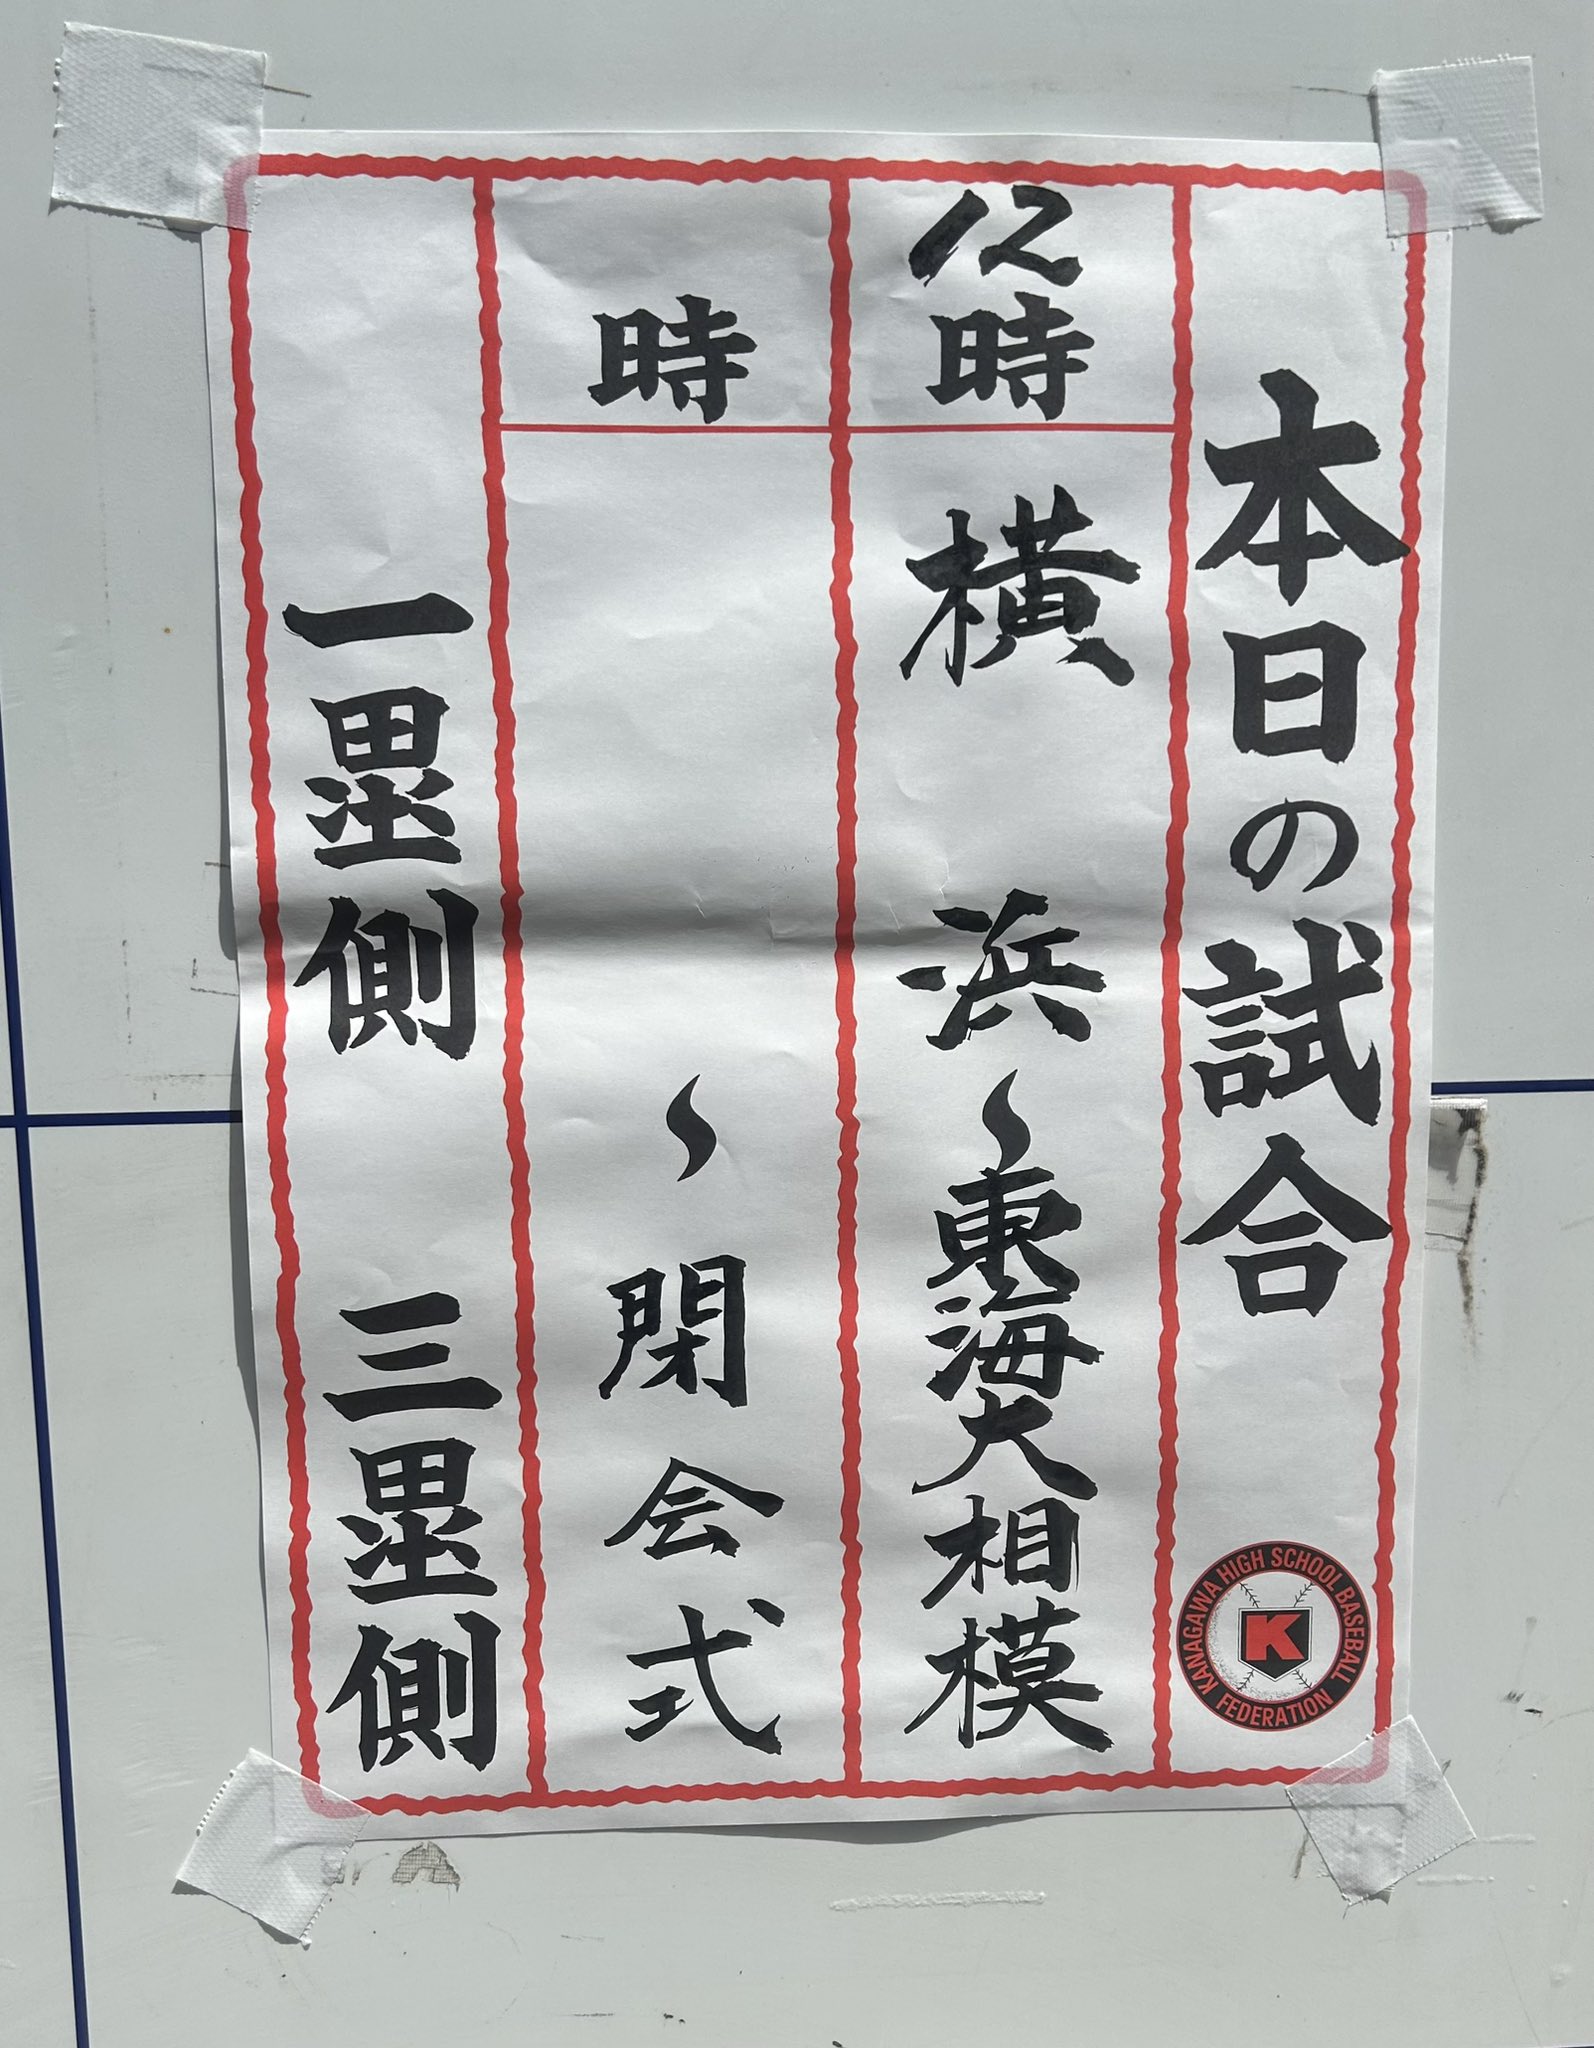 本日の試合
KANAGAWA HIGH SCHOOL BASEBALL FEDERATION
K
12時
横浜〜東海大相模
時
〜閉会式
一塁側 三塁側